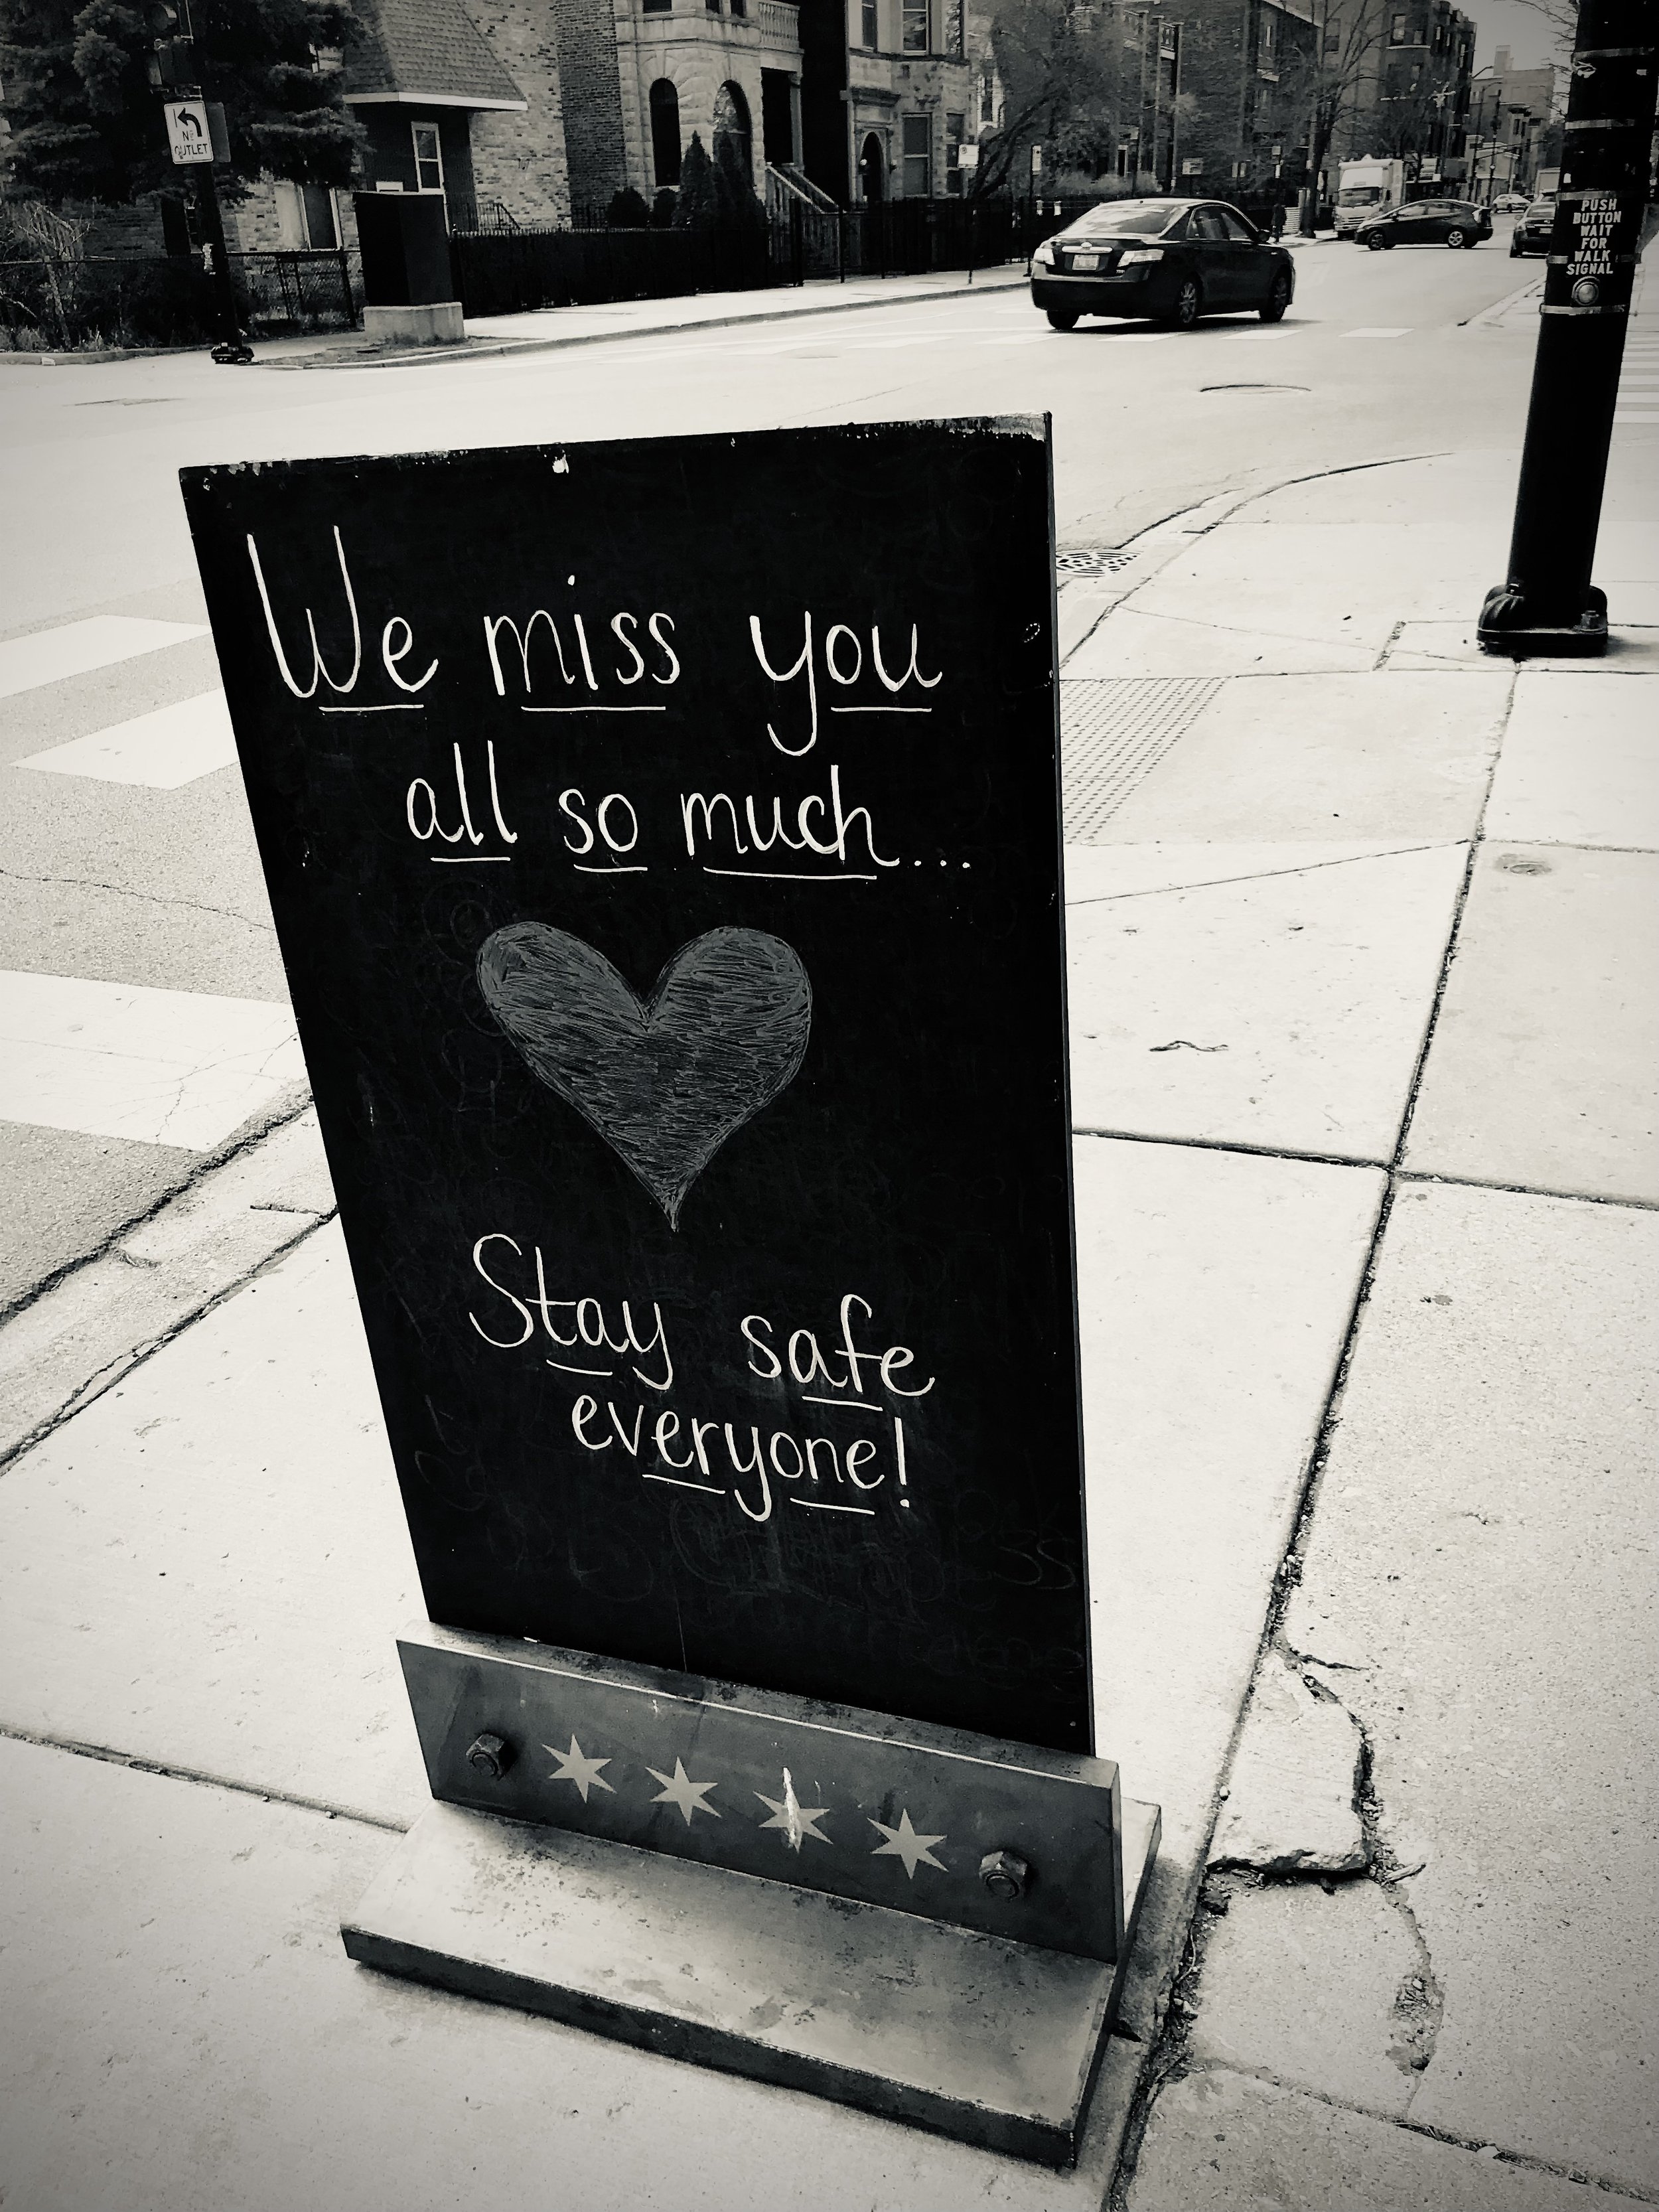 NO
OUTLET
PUSH
BUTTON
WAIT
FOR
WALK
SIGNAL
We miss you
all so much...
Stay safe
everyone!